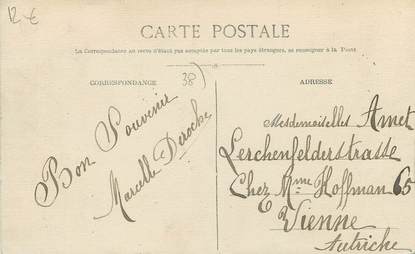 12 €
CARTE POSTALE
La Correspondance au verso n'étant pas acceptée par tous les pays étrangers, se renseigner à la Poste
CORRESPONDANCE
38)
Bon Souvenir
Marcelle Deroche
ADRESSE
Mesdemoiselles Amet
Lerchenfelderstrasse
Chez Mme Hoffman 65
Vienne
Autriche